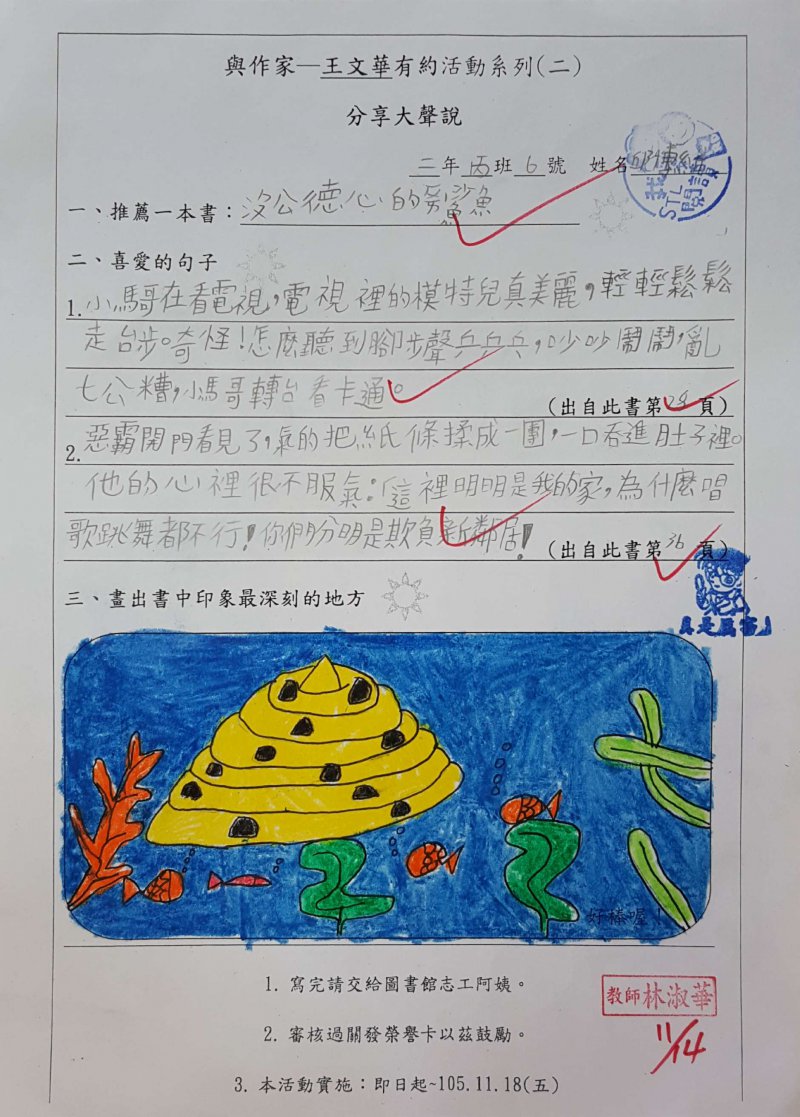 與作家—王文華有約活動系列(二)
分享大聲說
二年丙班6號 姓名
STL 閱讀
一、推薦一本書：沒公德心的鯊魚
二、喜愛的句子
1.小馬哥在看電視，電視裡的模特兒真美麗，輕輕鬆鬆
走台步。奇怪！怎麼聽到腳步聲乒乒乓，吵吵鬧鬧，亂
七公糟，小馬哥轉台看卡通。
(出自此書第28頁)
2.惡霸開門看見了，氣的把紙條揉成一團，一口吞進肚子裡。
他的心裡很不服氣：這裡明明是我的家，為什麼唱
歌跳舞都不行！你們分明是欺負新鄰居！
(出自此書第36頁)
真是厲害
三、畫出書中印象最深刻的地方
好棒喔！
1. 寫完請交給圖書館志工阿姨。
教師林淑華
2. 審核過關發榮譽卡以茲鼓勵。
11/14
3. 本活動實施：即日起~105.11.18(五)